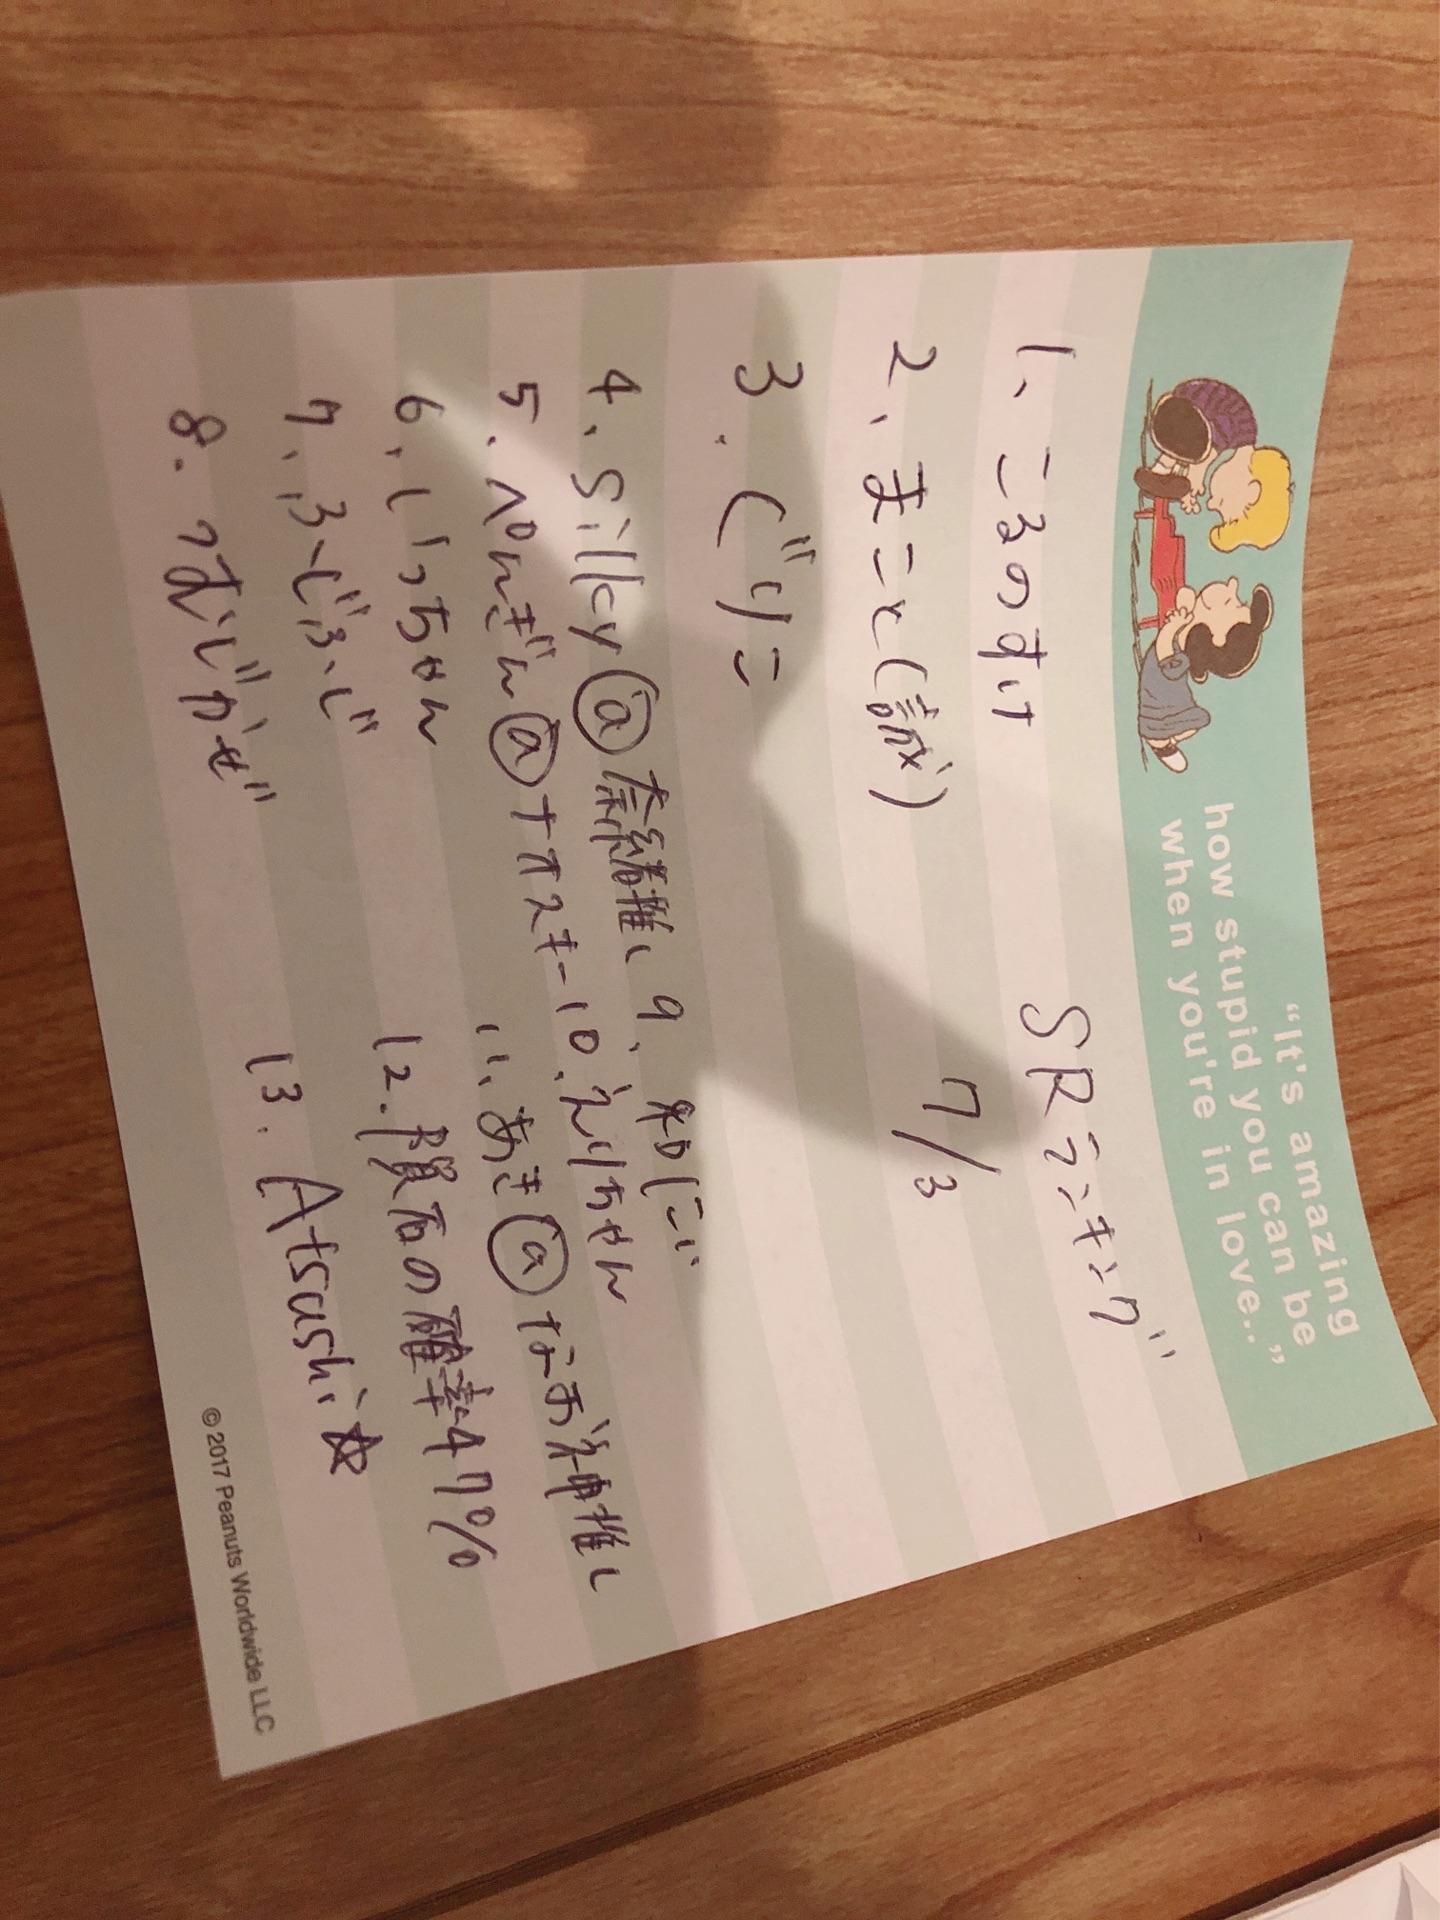 "It's amazing
how stupid you can be
when you're in love.."
SRランキング
7/3
1、ころのすけ
2、まこと(誠)
3.ぐりこ
4、Silkyⓐ奈緒推し
5、ぺんぎんⓐナオスキー
6、しっちゃん
7、ふじふじ
8.つむじかぜ
9、知にい
10、えりちゃん
11、あきⓐなお神推し
12.隕石の確率47%
13.Atsushi☆
© 2017 Peanuts Worldwide LLC